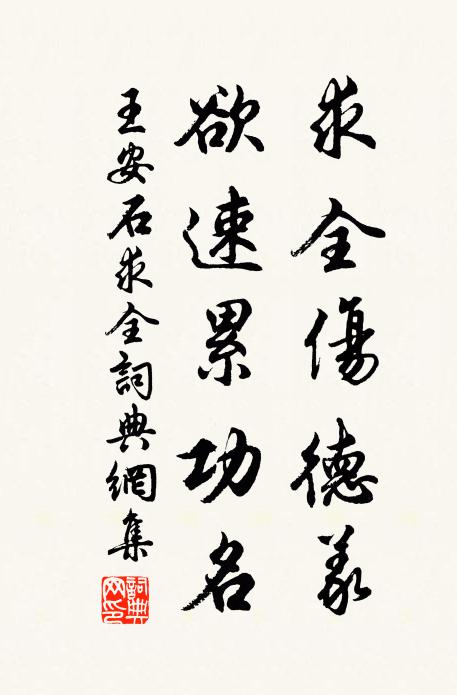 求全傷德義
欲速累功名
王安石求全詞典網集
詞典网印